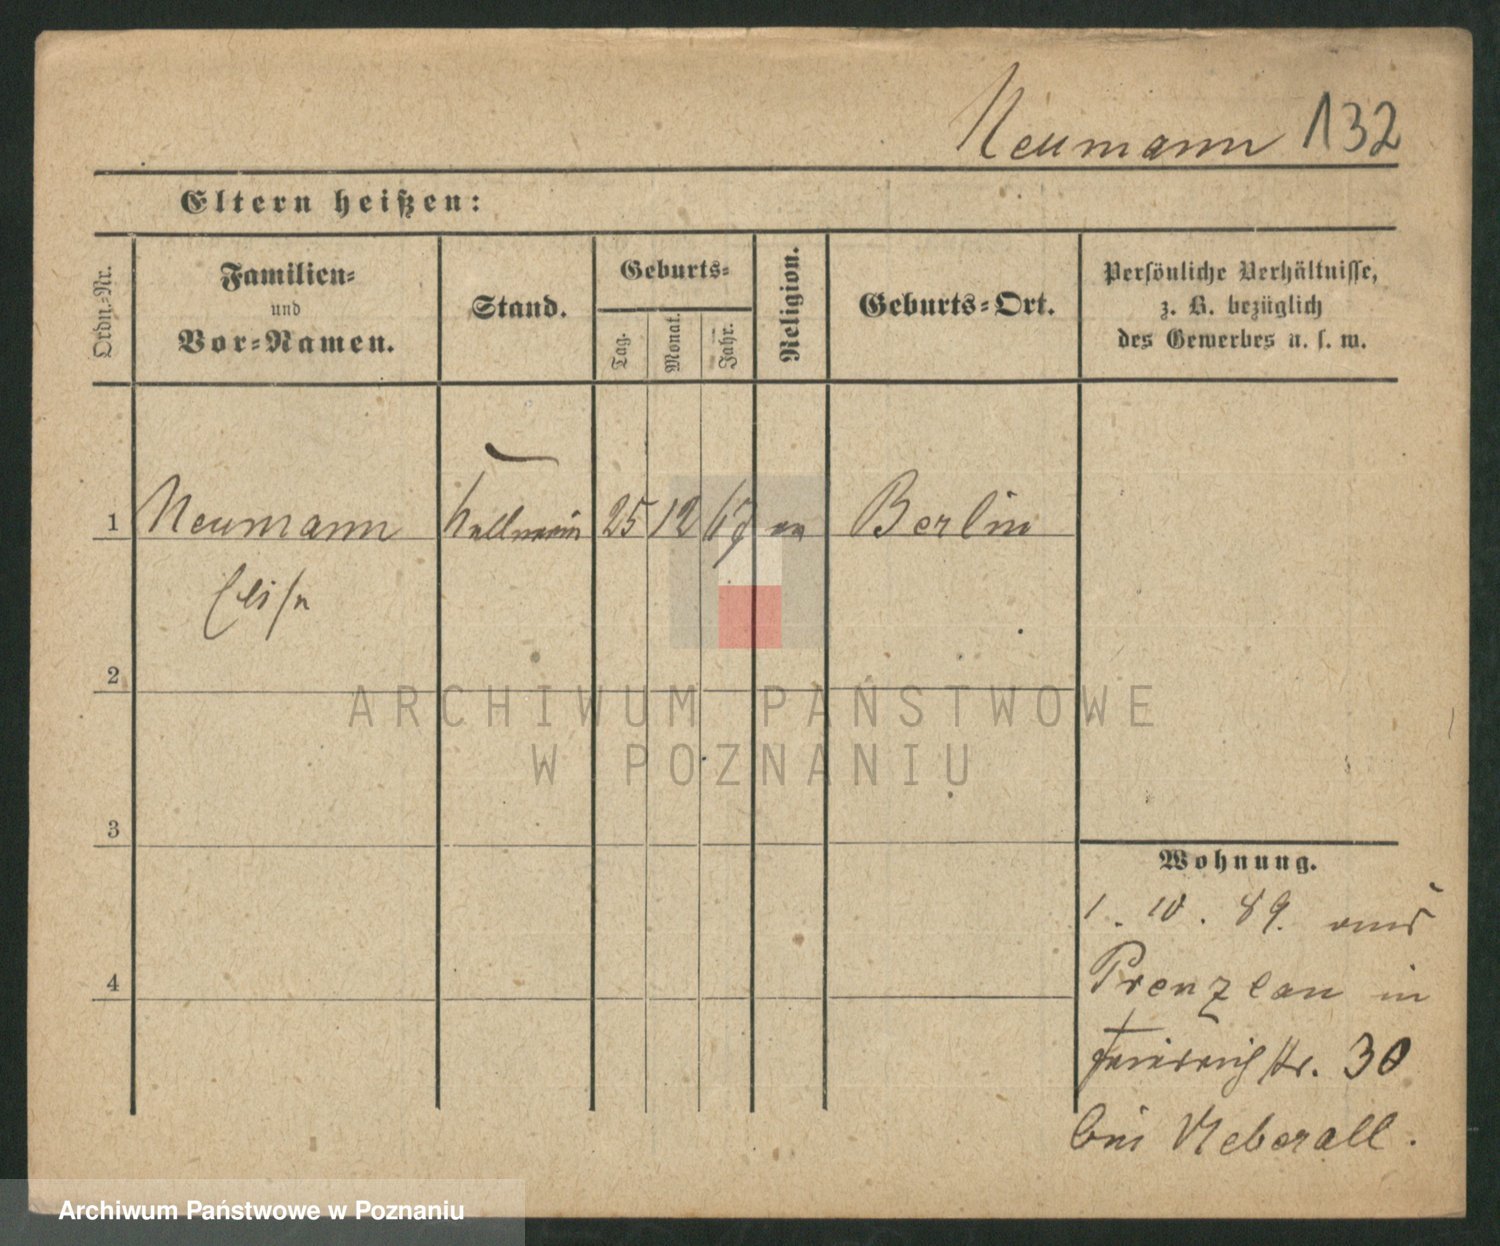 Neumann 132
Eltern heißen:
Ordn.-Nr.
Familien-
und
Vor-Namen.
Stand.
Geburts-
Tag.
Monat.
Jahr.
Religion.
Geburts-Ort.
Persönliche Verhältnisse,
z. B. bezüglich
des Gewerbes u. s. w.
1 Neumann Kellnerin 25 12 67 ev Berlin
Elise
2
3
4
Wohnung.
1. 10. 89. aus
Prenzlau in
Friedrichstr. 30
bei Ueberall.
ARCHIWUM PAŃSTWOWE
W POZNANIU
Archiwum Państwowe w Poznaniu